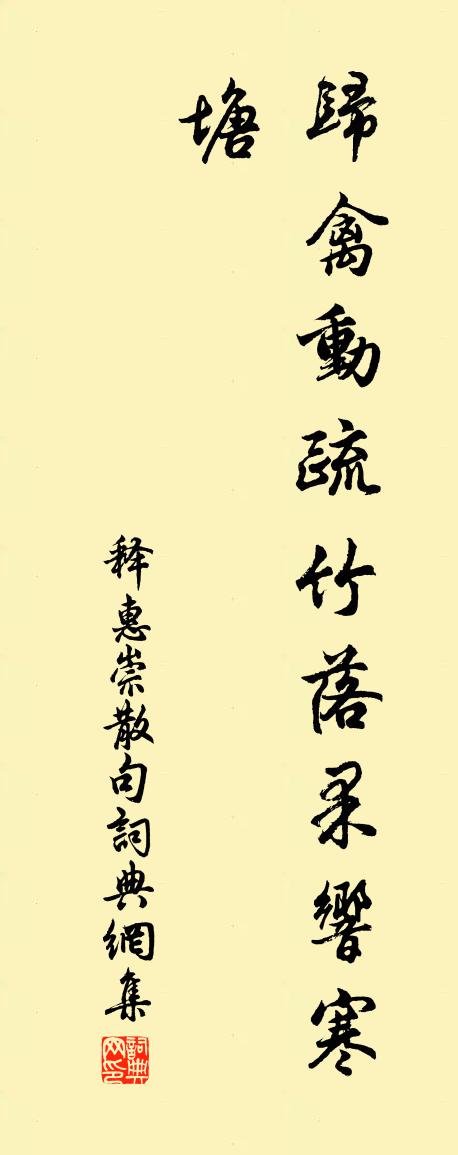 歸禽動疏竹落果響寒
塘
释惠崇散句詞典網集
詞典網印